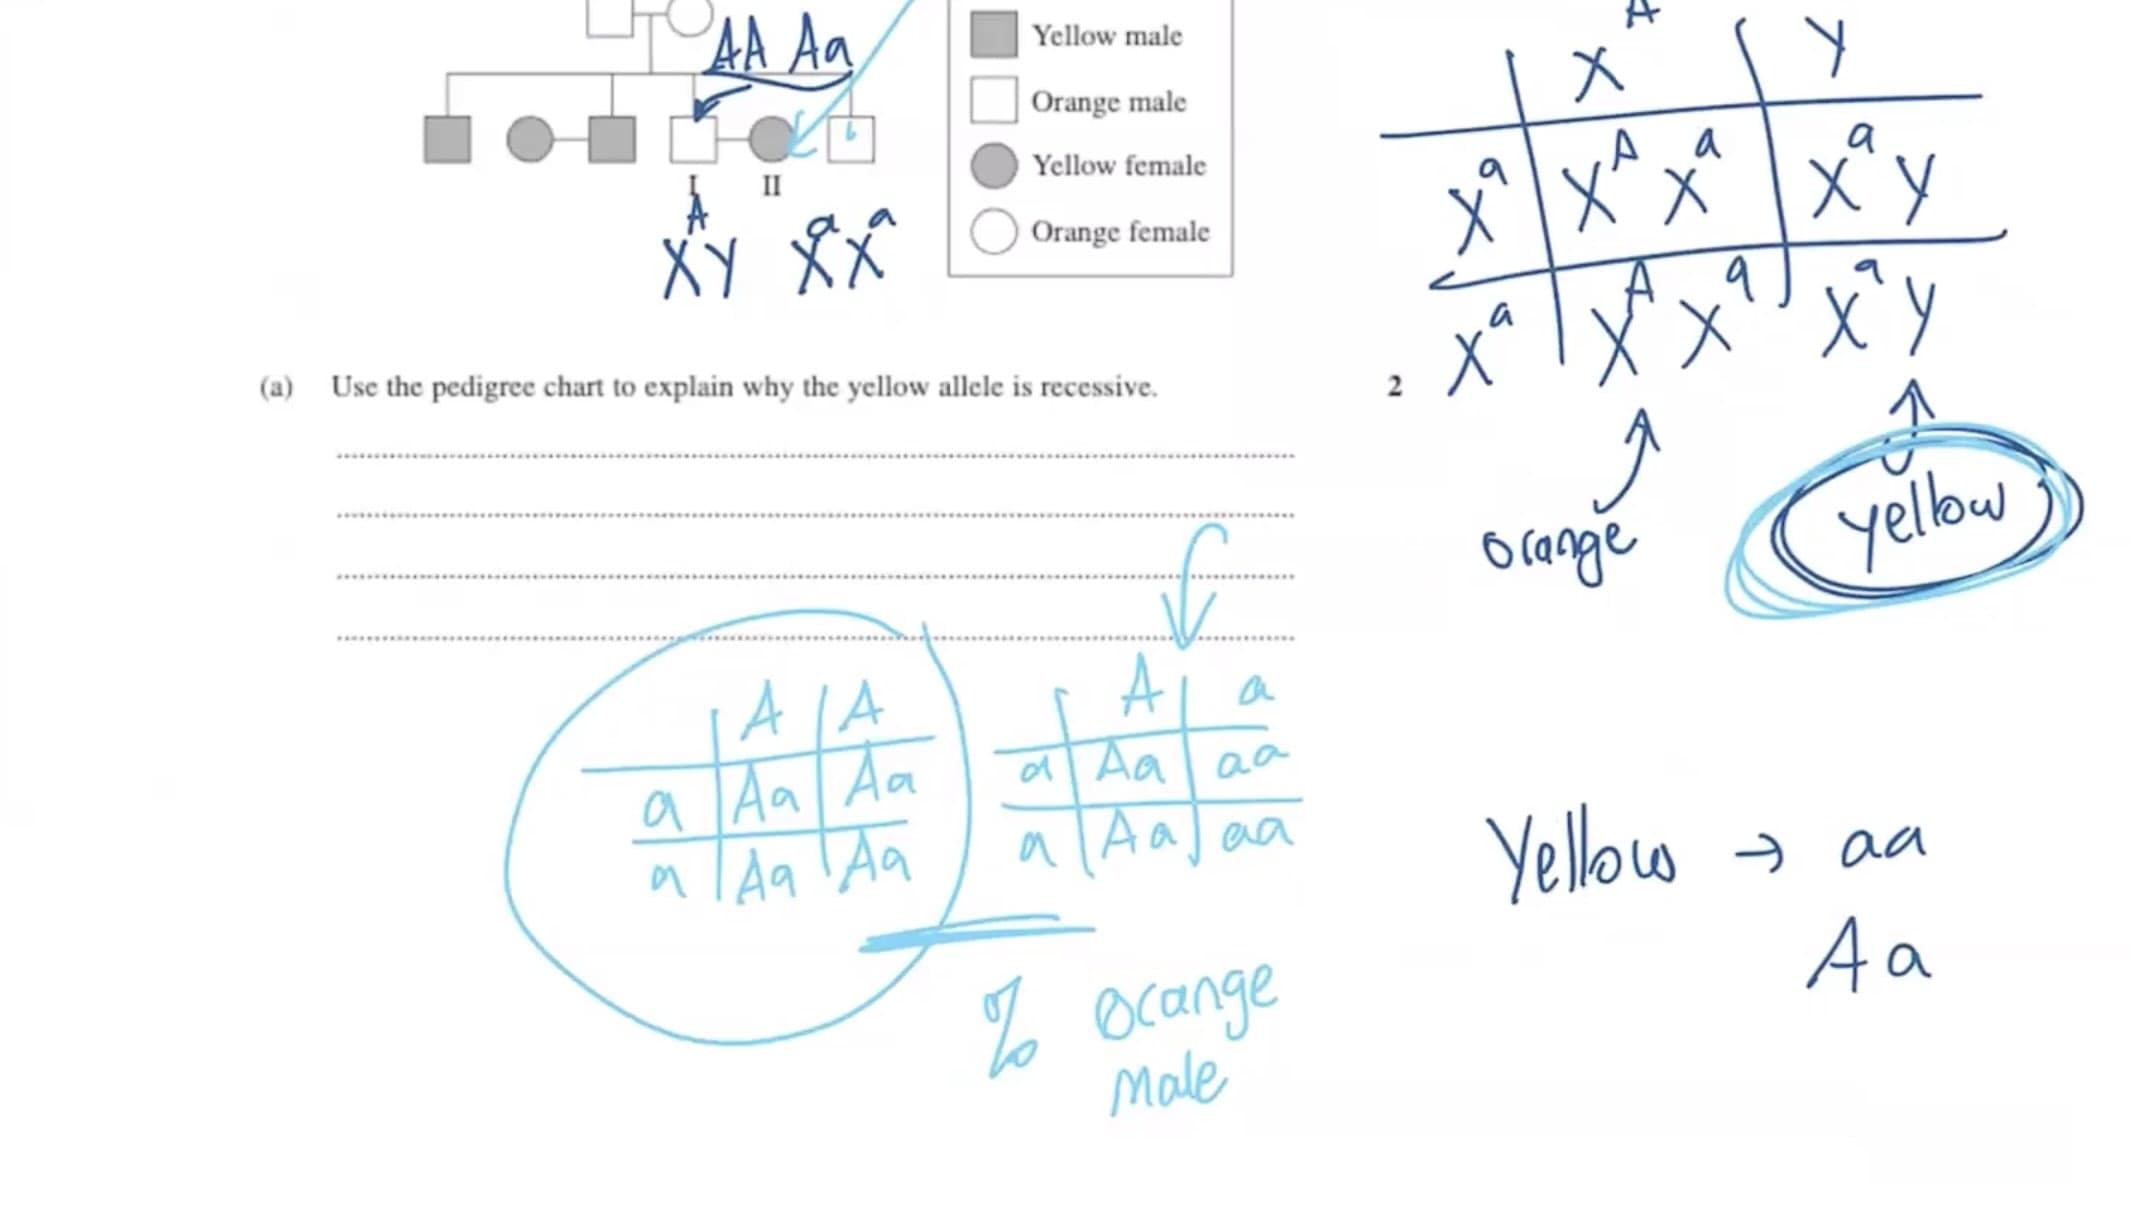 AA Aa
Yellow male
Orange male
Yellow female
Orange female
I II
A a a
XY XX
(a) Use the pedigree chart to explain why the yellow allele is recessive. 2
A
X Y
a A a a
X X X X Y
a A a a
X X X X Y
orange
yellow
A A
a Aa Aa
a Aa Aa
A a
a Aa aa
a Aa aa
% orange
male
Yellow → aa
Aa